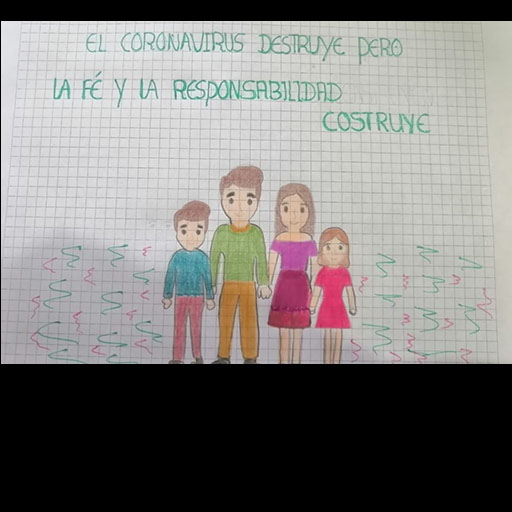 EL CORONAVIRUS DESTRUYE PERO
LA FÉ Y LA RESPONSABILIDAD
COSTRUYE